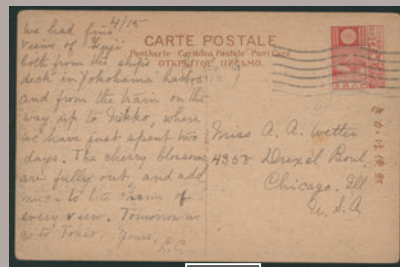 4/15
We had fine
views of Fuji
both from the ship's
deck in Yokohama harbor
and from the train on the
way up to Nikko, where
we have just spent two
days. The cherry blossoms
are fully out, and add
much to the charm of
every view. Tomorrow we
go to Tokio. Yours,
CARTE POSTALE
Postkarte Cartolina Postale Post Card
ОТКРЫТОЕ ПИСЬМО.
Miss A. A. Wetter
4358 Drexel Boul.
Chicago, Ill
U. S. A